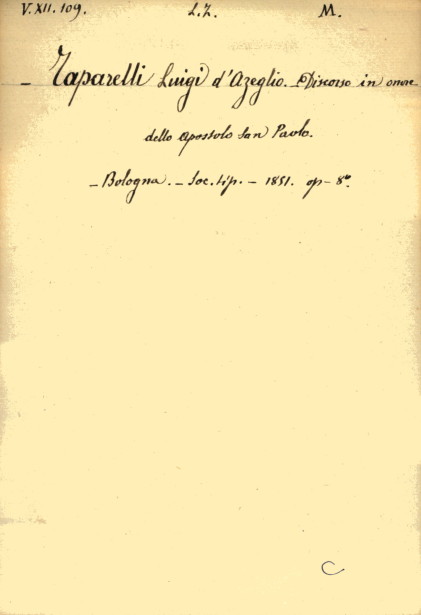 V. XII. 109. L.Z. M.
- Taparelli Luigi d'Azeglio. - Discorso in onore
dello Apostolo San Paolo.
- Bologna. - Soc. tip. - 1851. op - 8º.
C